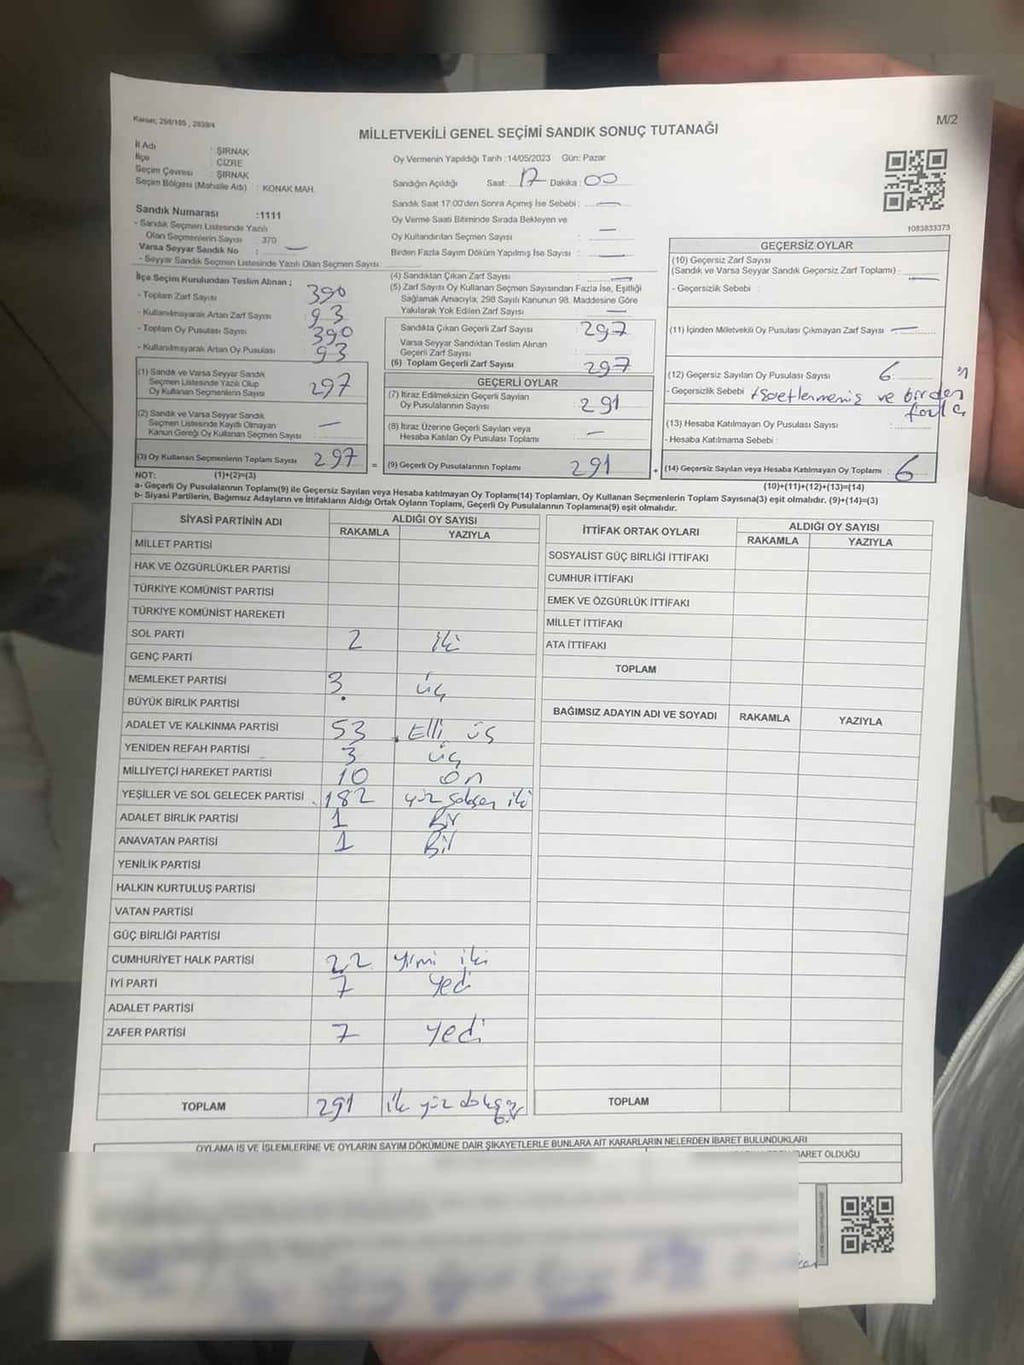 Kanun; 298/105 , 2839/4
M/2
MİLLETVEKİLİ GENEL SEÇİMİ SANDIK SONUÇ TUTANAĞI
İl Adı : ŞIRNAK
İlçe : CİZRE
Seçim Çevresi : ŞIRNAK
Seçim Bölgesi (Mahalle Adı) : KONAK MAH.
Sandık Numarası :1111
- Sandık Seçmen Listesinde Yazılı
Olan Seçmenlerin Sayısı 370
Varsa Seyyar Sandık No : —
- Seyyar Sandık Seçmen Listesinde Yazılı Olan Seçmen Sayısı:
Oy Vermenin Yapıldığı Tarih :14/05/2023 Gün: Pazar
Sandığın Açıldığı Saat: 17 Dakika : 00
Sandık Saat 17:00'den Sonra Açımış İse Sebebi : —
Oy Verme Saati Bitiminde Sırada Bekleyen ve
Oy Kullandırılan Seçmen Sayısı : —
Birden Fazla Sayım Döküm Yapılmış İse Sayısı : —
1083833373
İlçe Seçim Kurulundan Teslim Alınan ;
- Toplam Zarf Sayısı : 390
- Kullanılmayarak Artan Zarf Sayısı : 93
- Toplam Oy Pusulası Sayısı : 390
- Kullanılmayarak Artan Oy Pusulası : 93
(1) Sandık ve Varsa Seyyar Sandık
Seçmen Listesinde Yazılı Olup
Oy Kullanan Seçmenlerin Sayısı : 297
(2) Sandık ve Varsa Seyyar Sandık
Seçmen Listesinde Kayıtlı Olmayan
Kanun Gereği Oy Kullanan Seçmen Sayısı : —
(3) Oy Kullanan Seçmenlerin Toplam Sayısı : 297
(4) Sandıktan Çıkan Zarf Sayısı : —
(5) Zarf Sayısı Oy Kullanan Seçmen Sayısından Fazla İse, Eşitliği
Sağlamak Amacıyla; 298 Sayılı Kanunun 98. Maddesine Göre
Yakılarak Yok Edilen Zarf Sayısı : —
Sandıkta Çıkan Geçerli Zarf Sayısı : 297
Varsa Seyyar Sandıktan Teslim Alınan
Geçerli Zarf Sayısı :
(6) Toplam Geçerli Zarf Sayısı : 297
GEÇERLİ OYLAR
(7) İtiraz Edilmeksizin Geçerli Sayılan
Oy Pusulalarının Sayısı : 291
(8) İtiraz Üzerine Geçerli Sayılan veya
Hesaba Katılan Oy Pusulası Toplamı : —
= (9) Geçerli Oy Pusulalarının Toplamı : 291
GEÇERSİZ OYLAR
(10) Geçersiz Zarf Sayısı
(Sandık ve Varsa Seyyar Sandık Geçersiz Zarf Toplamı) : —
- Geçersizlik Sebebi :
(11) İçinden Milletvekili Oy Pusulası Çıkmayan Zarf Sayısı : —
(12) Geçersiz Sayılan Oy Pusulası Sayısı : 6
- Geçersizlik Sebebi : ve birden fazla
(13) Hesaba Katılmayan Oy Pusulası Sayısı :
- Hesaba Katılmama Sebebi :
(14) Geçersiz Sayılan veya Hesaba Katılmayan Oy Toplamı : 6
NOT: (1)+(2)=(3) (10)+(11)+(12)+(13)=(14)
a- Geçerli Oy Pusulalarının Toplamı(9) ile Geçersiz Sayılan veya Hesaba katılmayan Oy Toplamı(14) Toplamları, Oy Kullanan Seçmenlerin Toplam Sayısına(3) eşit olmalıdır. (9)+(14)=(3)
b- Siyasi Partilerin, Bağımsız Adayların ve İttifakların Aldığı Ortak Oyların Toplamı, Geçerli Oy Pusulalarının Toplamına(9) eşit olmalıdır.
SİYASİ PARTİNİN ADI ALDIĞI OY SAYISI
RAKAMLA YAZIYLA
MİLLET PARTİSİ
HAK VE ÖZGÜRLÜKLER PARTİSİ
TÜRKİYE KOMÜNİST PARTİSİ
TÜRKİYE KOMÜNİST HAREKETİ
SOL PARTİ 2 iki
GENÇ PARTİ
MEMLEKET PARTİSİ 3 üç
BÜYÜK BİRLİK PARTİSİ
ADALET VE KALKINMA PARTİSİ 53 Elli üç
YENİDEN REFAH PARTİSİ 3 üç
MİLLİYETÇİ HAREKET PARTİSİ 10 on
YEŞİLLER VE SOL GELECEK PARTİSİ 182 yüz seksen iki
ADALET BİRLİK PARTİSİ 1 Bir
ANAVATAN PARTİSİ 1 Bir
YENİLİK PARTİSİ
HALKIN KURTULUŞ PARTİSİ
VATAN PARTİSİ
GÜÇ BİRLİĞİ PARTİSİ
CUMHURİYET HALK PARTİSİ 22 yirmi iki
İYİ PARTİ 7 yedi
ADALET PARTİSİ
ZAFER PARTİSİ 7 yedi
TOPLAM 291 iki yüz doksan bir
İTTİFAK ORTAK OYLARI ALDIĞI OY SAYISI
RAKAMLA YAZIYLA
SOSYALİST GÜÇ BİRLİĞİ İTTİFAKI
CUMHUR İTTİFAKI
EMEK VE ÖZGÜRLÜK İTTİFAKI
MİLLET İTTİFAKI
ATA İTTİFAKI
TOPLAM
BAĞIMSIZ ADAYIN ADI VE SOYADI RAKAMLA YAZIYLA
TOPLAM
OYLAMA İŞ VE İŞLEMLERİNE VE OYLARIN SAYIM DÖKÜMÜNE DAİR ŞİKAYETLERLE BUNLARA AİT KARARLARIN NELERDEN İBARET BULUNDUKLARI
İBARET OLDUĞU